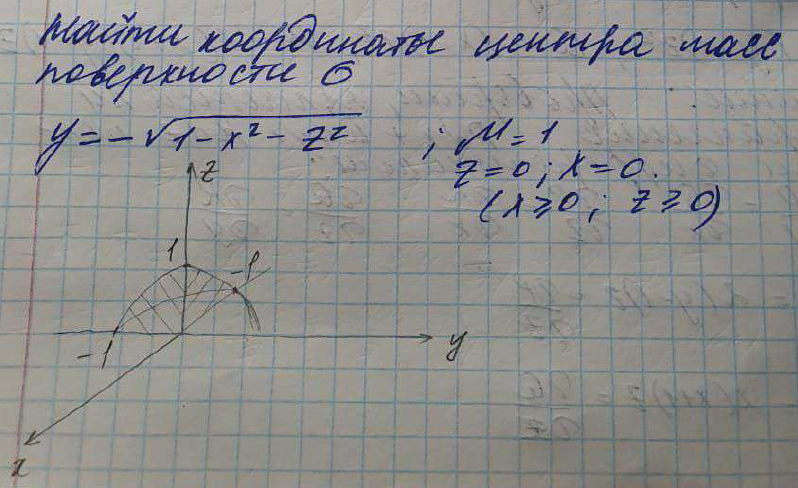 Найти координаты центра масс
поверхности σ
y = -√1-x²-z² ; μ = 1
z=0; x=0.
(x≥0; z≥0)
z
1
-1
-1
y
x